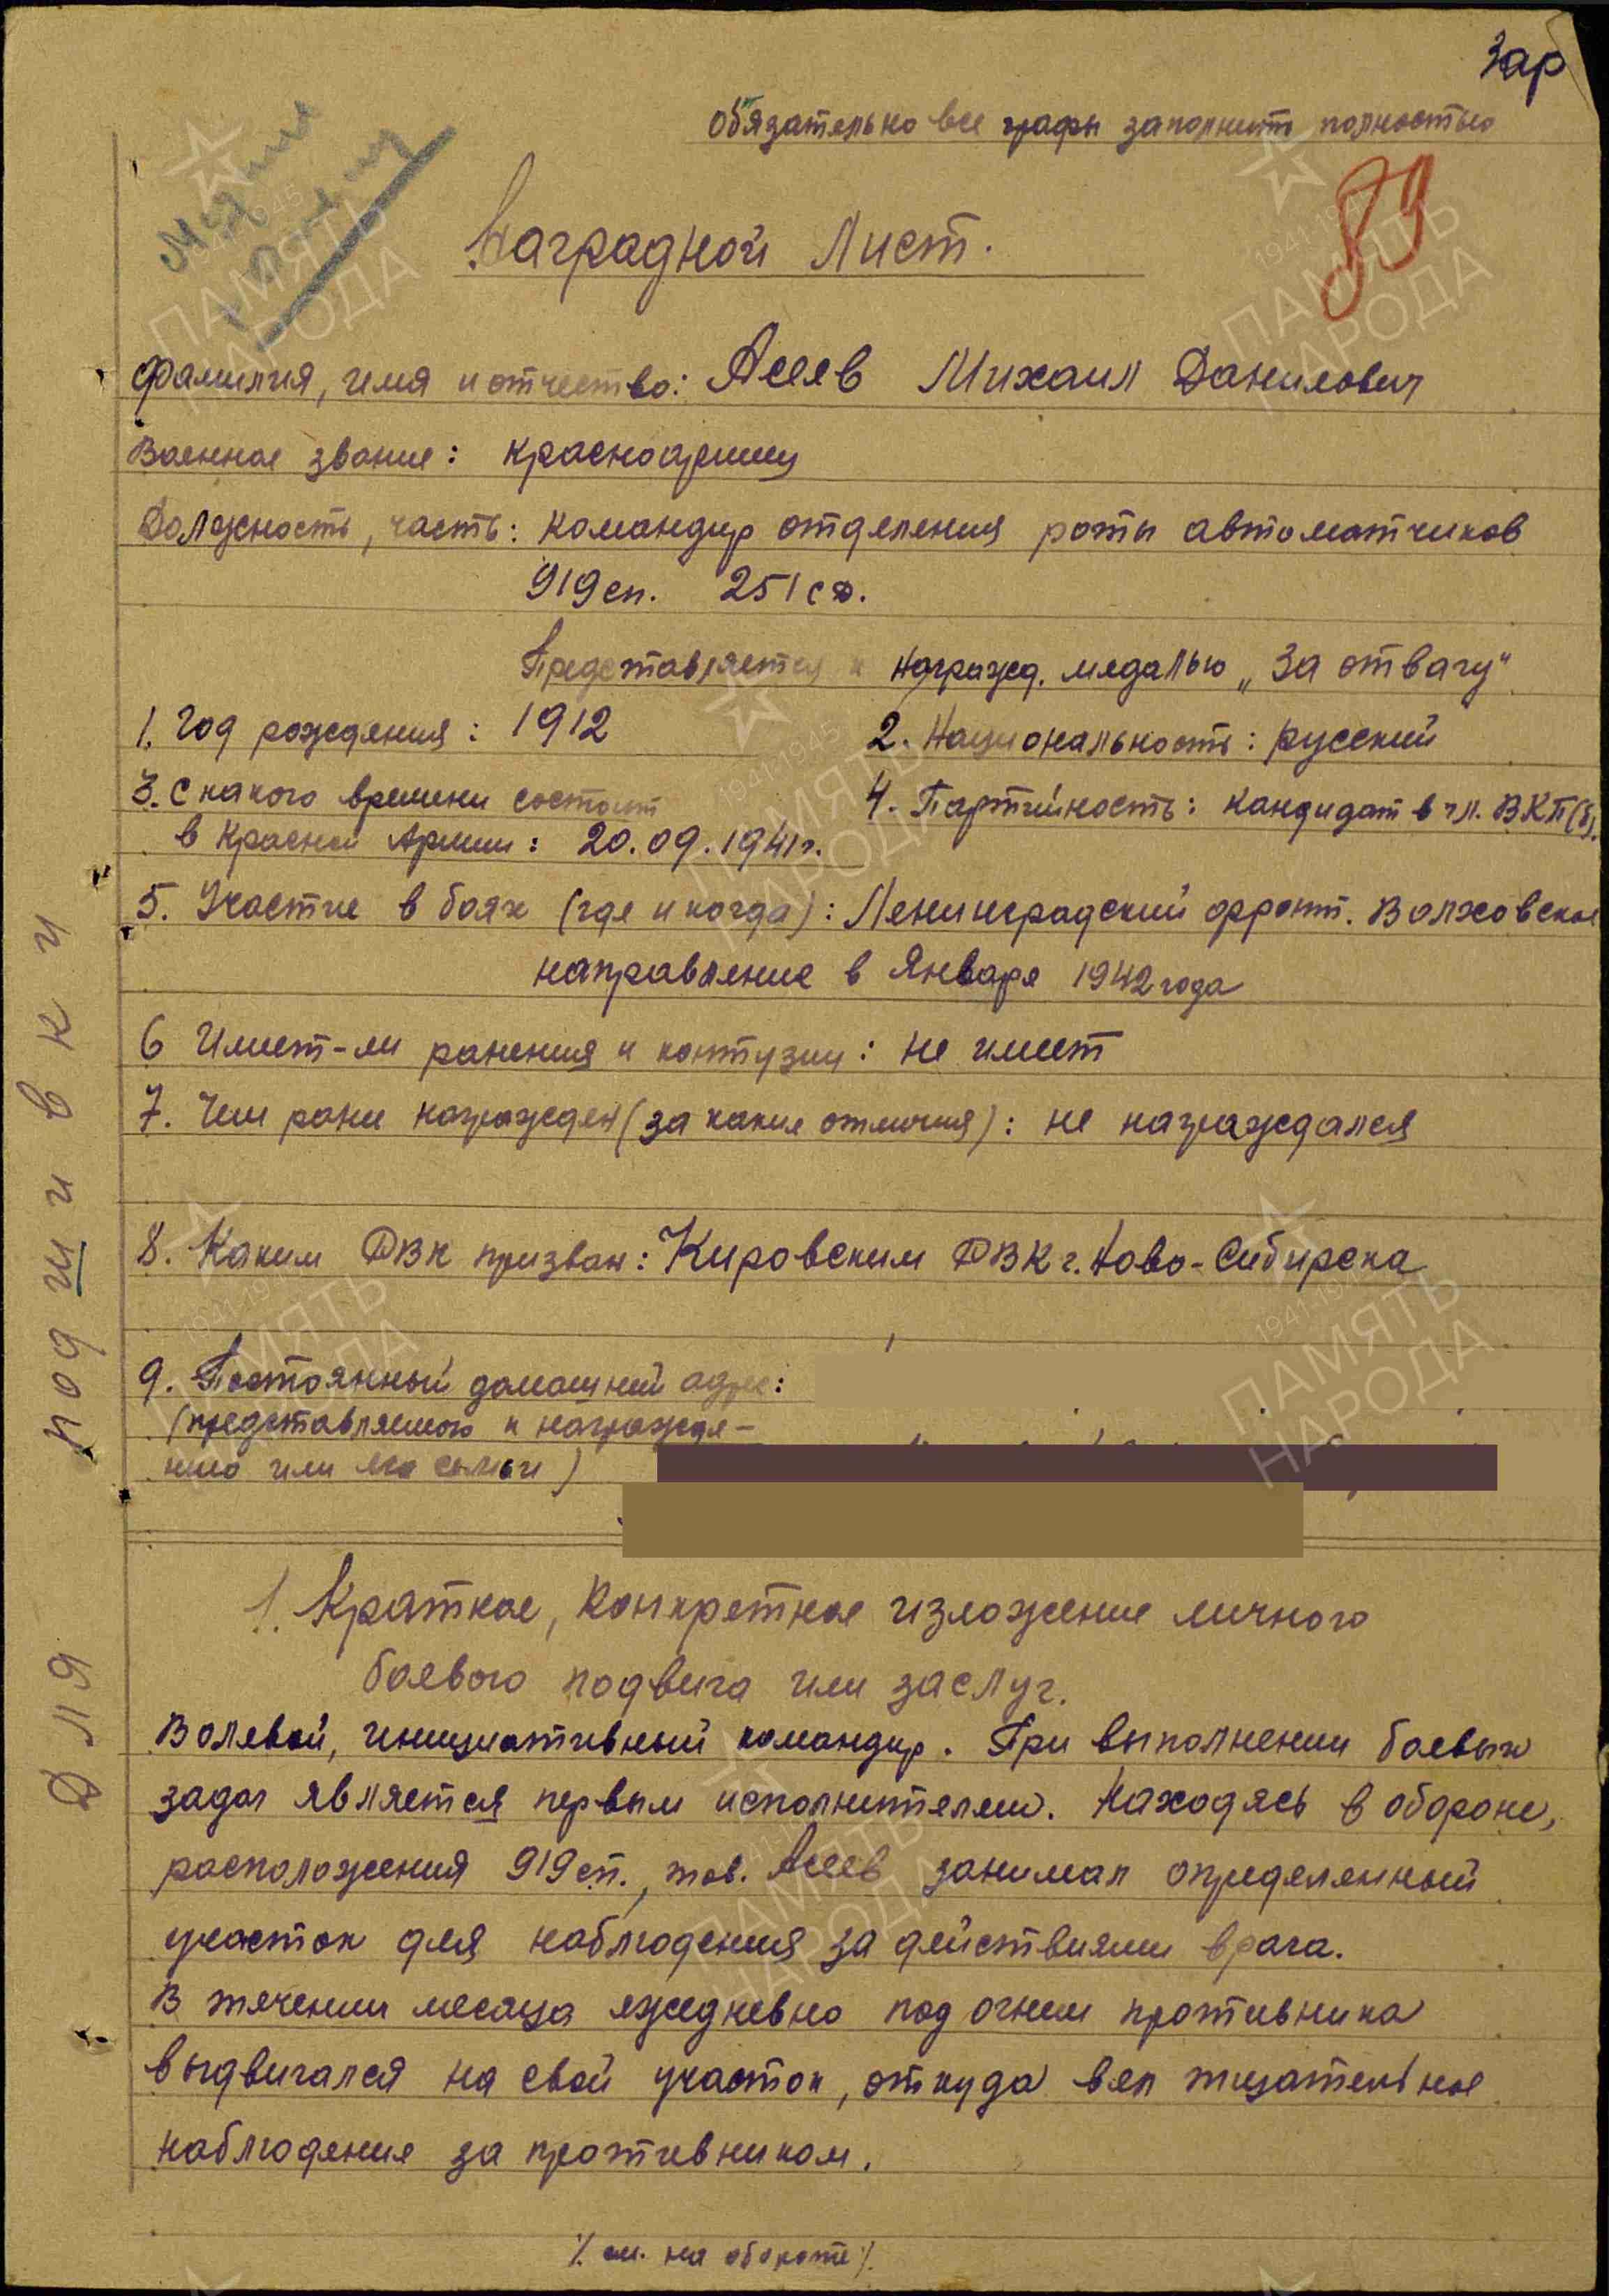 Зар
обязательно все графы заполнить полностью
89
Наградной Лист.
Фамилия, имя и отчество: Асеев Михаил Данилович
Военное звание: красноармеец
Должность, часть: командир отделения роты автоматчиков
919 сп. 251 сд.
Представляется к награжд. медалью „За отвагу"
1. Год рождения: 1912
2. Национальность: русский
3. С какого времени состоит
в Красной Армии: 20.09.1941г.
4. Партийность: кандидат в чл. ВКП(б).
5. Участие в боях (где и когда): Ленинградский фронт. Волховское
направление в Январе 1942 года
6 Имеет-ли ранения и контузии: не имеет
7. Чем ране награжден (за какие отличия): не награждался
8. Каким РВК призван: Кировским РВК г. Ново-Сибирска
9. Постоянный домашний адрес:
(представляемого к награжде-
нию или его семьи)
1. Краткое, конкретное изложение личного
боевого подвига или заслуг.
Волевой, инициативный командир. При выполнении боевых
задач является первым исполнителем. Находясь в обороне,
расположения 919 сп., тов. Асеев занимал определенный
участок для наблюдения за действиями врага.
В течении месяца ежедневно под огнем противника
выдвигался на свой участок, откуда вел тщательное
наблюдение за противником.
/. см. на обороте /.
Для подшивки
ПАМЯТЬ НАРОДА
1941-1945